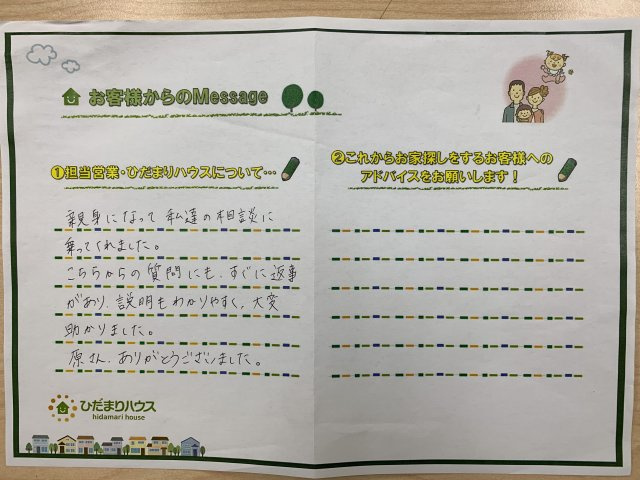 お客様からのMessage
①担当営業・ひだまりハウスについて…
親身になって私達の相談に
乗ってくれました。
こちらからの質問にも、すぐに返事
があり、説明もわかりやすく、大変
助かりました。
原さん、ありがとうございました。
ひだまりハウス
hidamari house
②これからお家探しをするお客様への
アドバイスをお願いします！